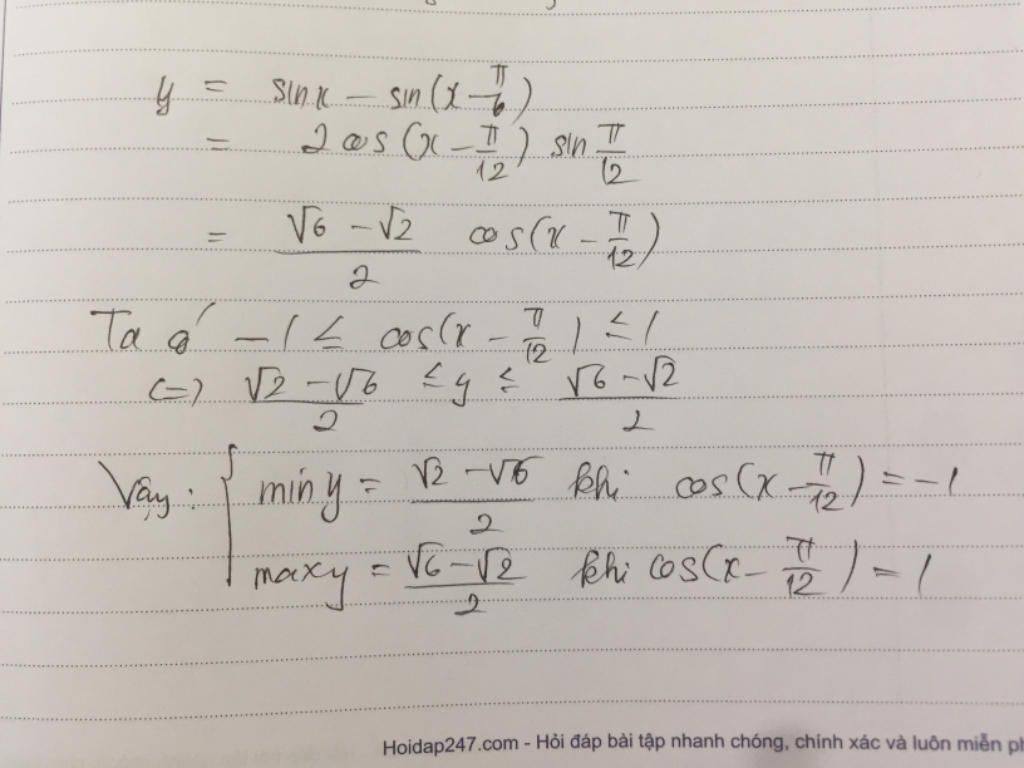 y = sinx - sin(x - π/6)
= 2 cos(x - π/12) sin π/12
= (√6 - √2)/2 cos(x - π/12)
Ta có -1 ≤ cos(x - π/12) ≤ 1
(=) (√2 - √6)/2 ≤ y ≤ (√6 - √2)/2
Vậy: { min y = (√2 - √6)/2 khi cos(x - π/12) = -1
max y = (√6 - √2)/2 khi cos(x - π/12) = 1
Hoidap247.com - Hỏi đáp bài tập nhanh chóng, chính xác và luôn miễn ph